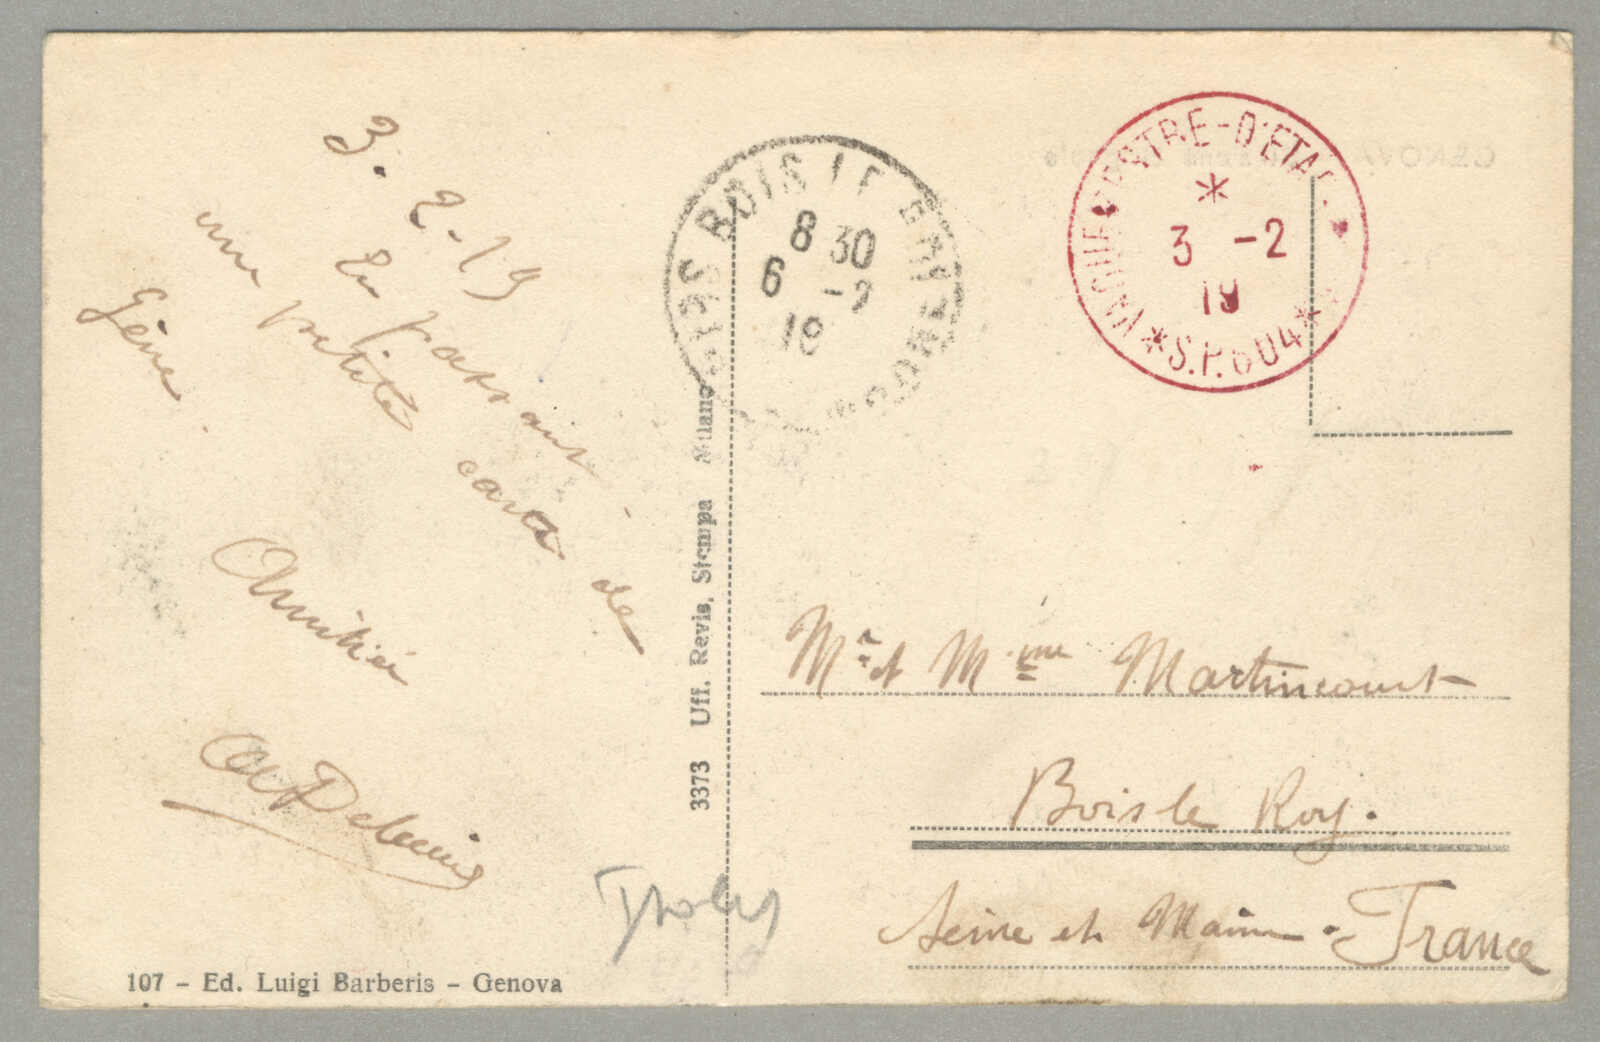 3.2-19
En passant
une petite carte de
Gêne.
Amitiés
3373 Uff. Revis. Stampa Milano
BOIS LE
8 30
6 -2
19
VAGUEMESTRE-D'ETAPE
3 -2
19
*S.P.604*
GENOVA
Mr et Mme Martincourt
Bois le Roy.
Seine et Marne - France
107 - Ed. Luigi Barberis - Genova